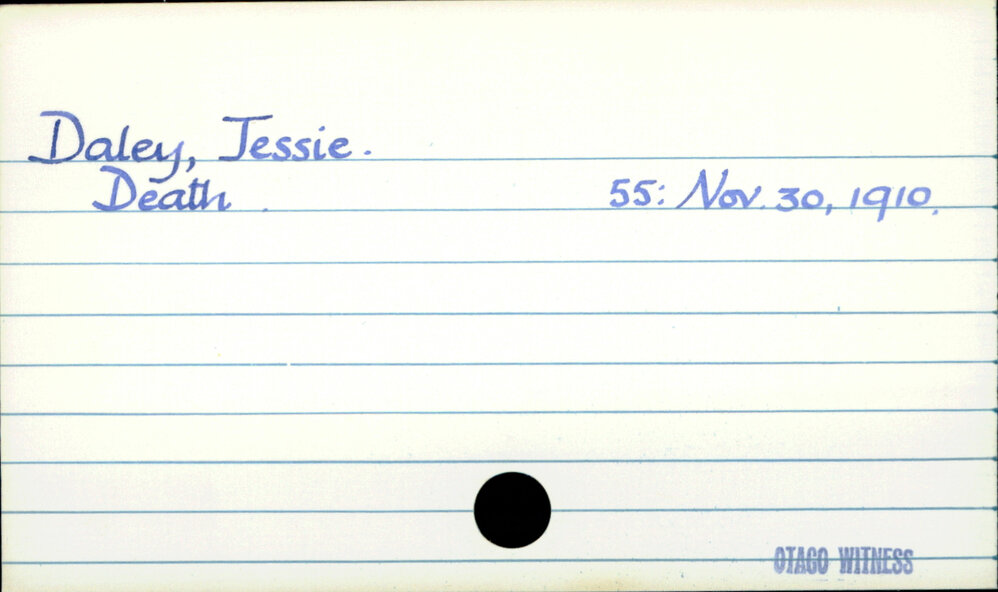 Daley, Jessie.
Death . 55: Nov. 30, 1910.
OTAGO WITNESS